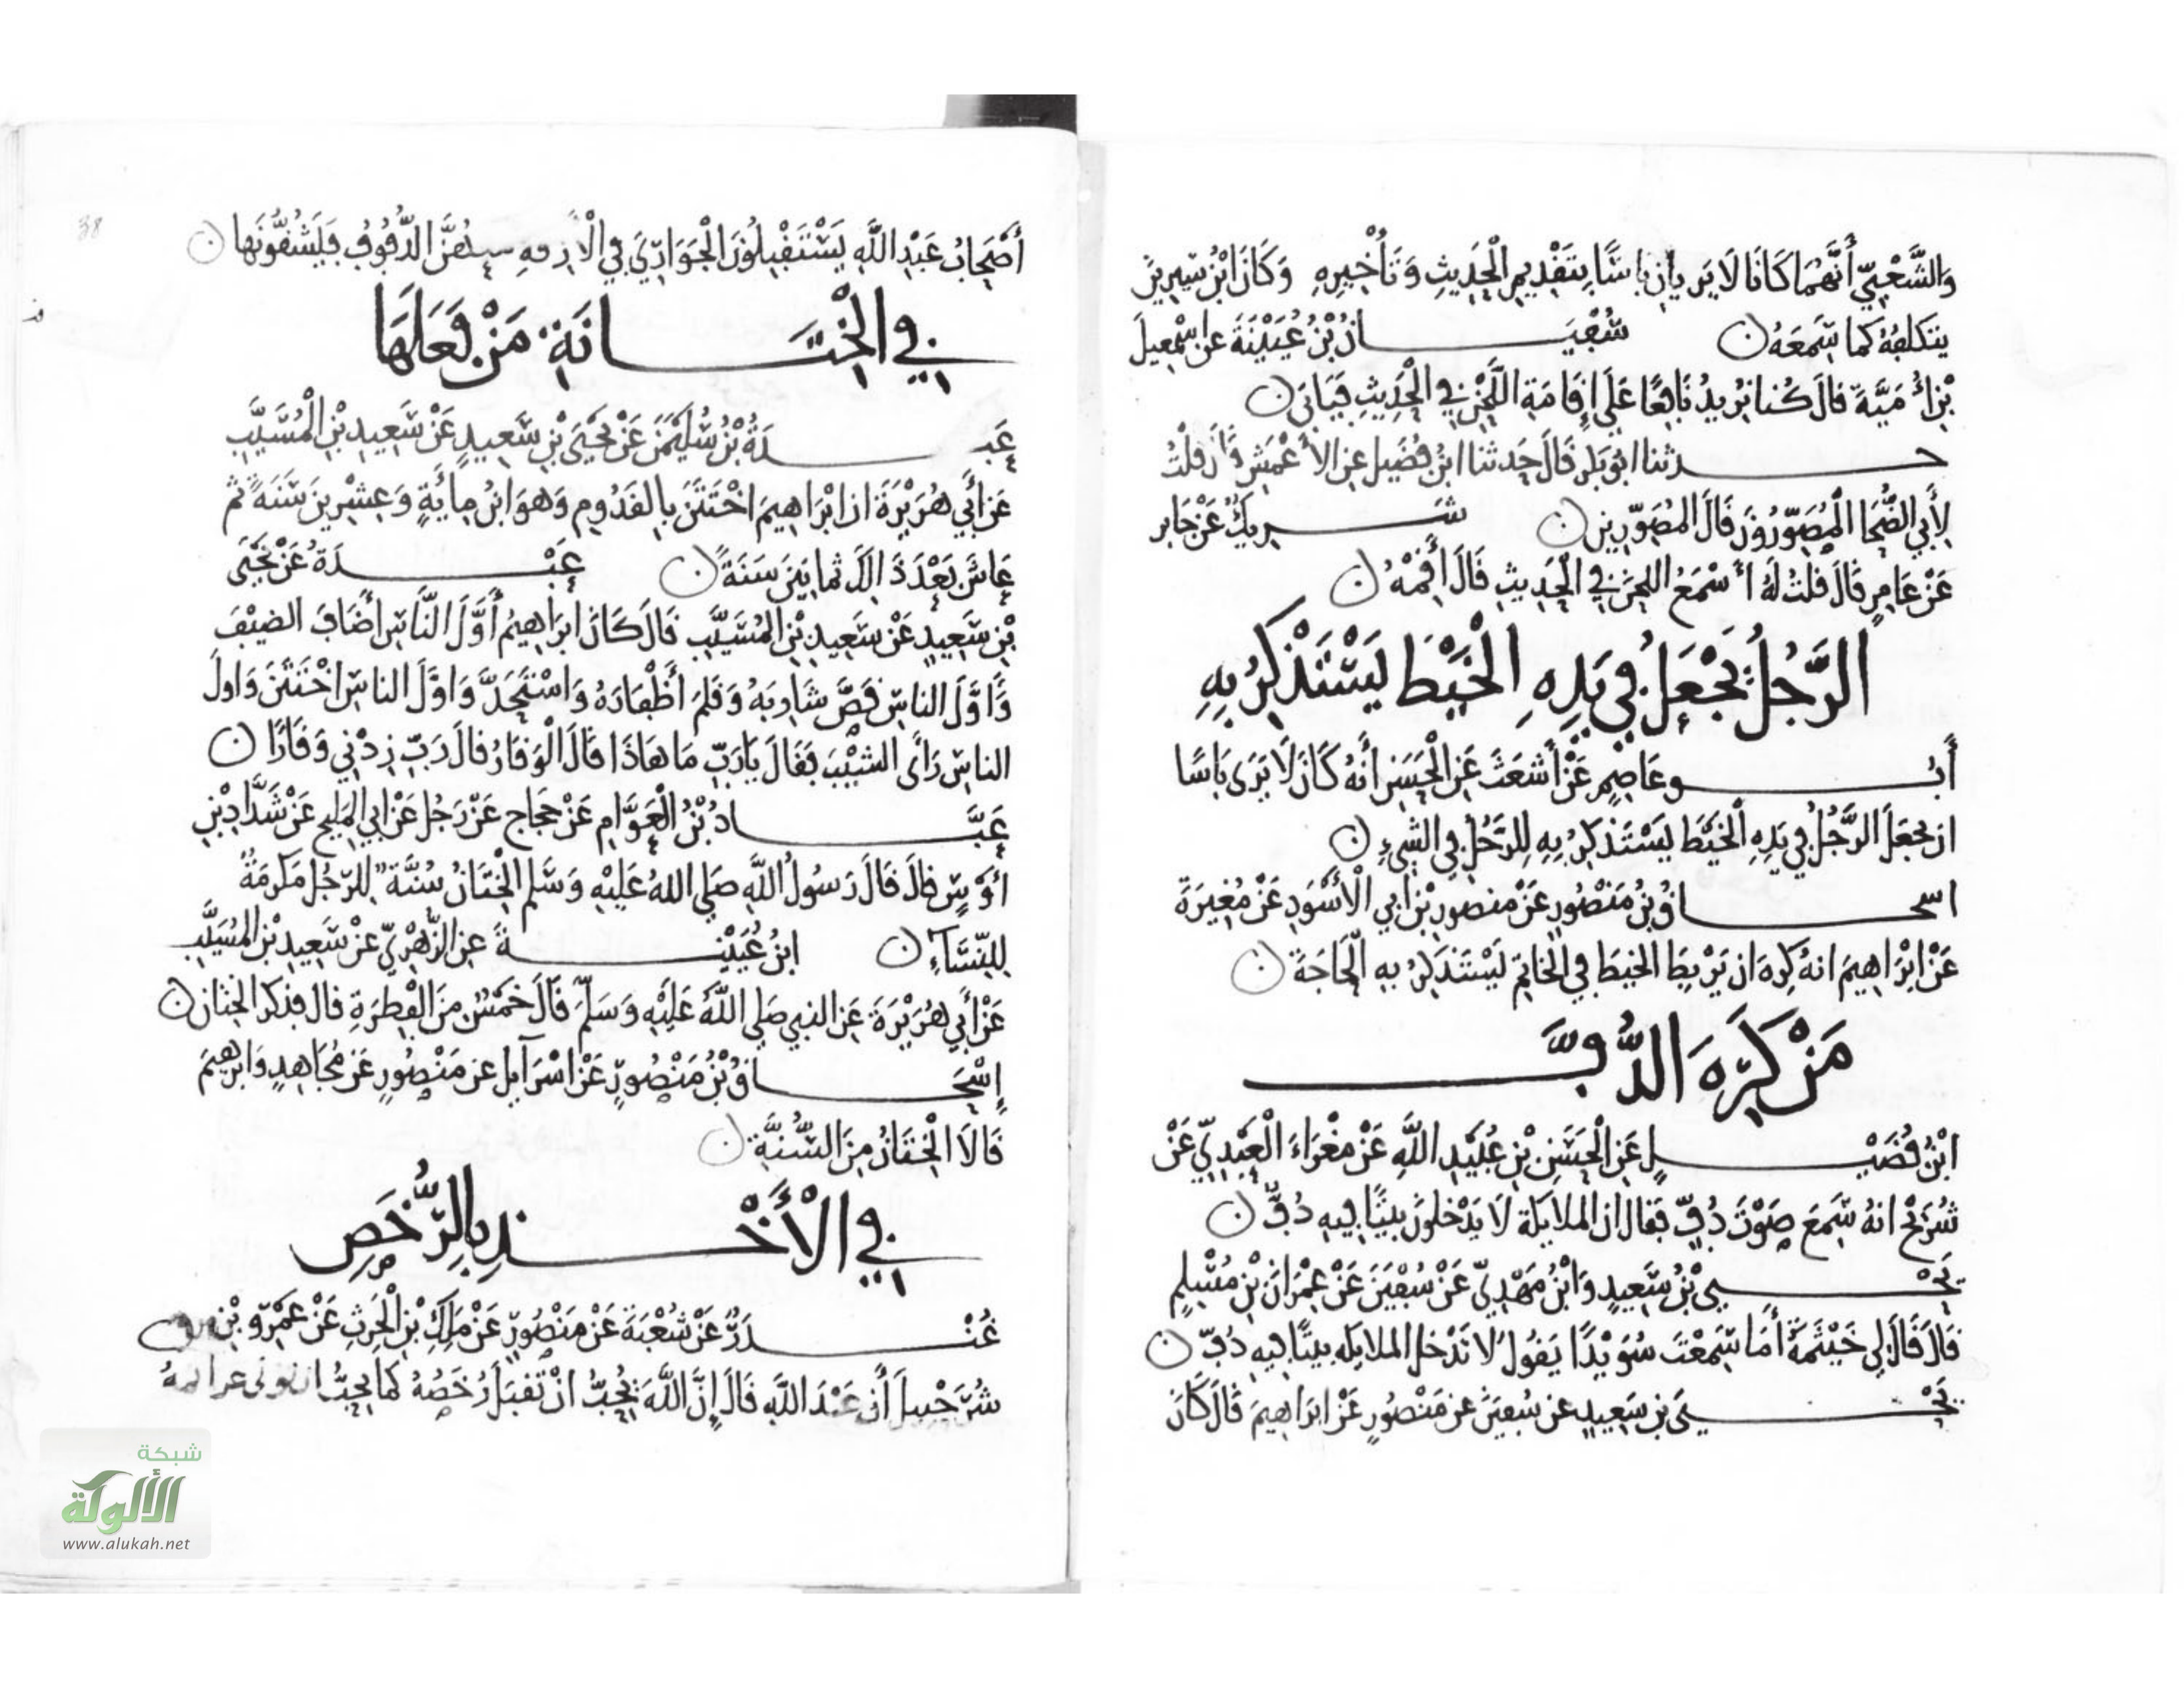 وَالشَّعْبِيِّ أَنَّهُمَا كَانَا لَا يَرَيَانِ بَاسًا بِتَقْدِيمِ الْحَدِيثِ وَتَأْخِيرِهِ وَكَانَ ابْنُ سِيرِينَ
يتكلفهُ كما سَمِعَهُ ن سُفْيَانُ بْنُ عُيَيْنَةَ عن اسْمعِيلَ
بْنِ أُمَيَّةَ قالَ كُنا نُرِيدُ نَافِعًا عَلَى إِقَامَةِ اللَّحْنِ فِي الْحَدِيثِ فَيَأبَى ن
حدثنا ابو بكر قَالَ حَدثنا ابْنُ فُضَيلٍ عنِ الأَعْمَشِ قَالَ قُلْتُ
لِأَبِي الضُّحَا الْمُصَوِّرُونَ قَالَ المُصَوِّرِين ن شَرِيكٌ عَنْ جَابِر
عَنْ عَامِرٍ قَالَ قلتُ لَهُ أَسْمَعُ اللحْنَ فِي الْحَدِيثِ قَالَ أَقِمْهُ ن
الرَّجُلُ يَجْعَلُ فِي يَدِهِ الْخَيْطَ يَسْتَذْكِرُ بِهِ
أَبُو عَاصِمٍ عَنْ أَشعَثَ عَنِ الْحَسَنِ أَنهُ كَانَ لَا يَرَى بَاسًا
ان يجعَلَ الرَّجُلُ فِي يَدِهِ الْخَيْطَ يَسْتَذْكِرُ بِهِ لِلرَّجُلِ فِي الشَّيءِ ن
اسحاقُ بنُ مَنْصُورٍ عَنْ منصورِ بْنِ أبي الْأَسْوَدِ عَنْ مُغِيرَةَ
عَنْ ابْرَاهِيمَ انهُ كَرِهَ ان يَرْبِطَ الخيطَ فِي الخاتمِ يَسْتَذْكِرُ بِهِ الْحَاجَةَ ن
مَنْ كَرِهَ الدُّفَّ
ابْنُ فُضَيْلٍ عَنِ الْحَسَنِ بْنِ عُبَيْدِ اللَّهِ عَنْ مَغْرَاءَ الْعَبْدِيِّ عَنْ
شُرَيْحٍ انهُ سَمِعَ صَوْتَ دُفٍّ فَقَال ان الملايكة لَا يَدْخلونَ بيتًا فِيهِ دُفٌّ ن
يَحْيى بْنُ سَعِيدٍ وَابْنُ مَهْدِيٍّ عَنْ سُفْيَنَ عَنْ عِمْرَانَ بْنِ مُسْلِمٍ
قَالَ قَالَ لِي خَيْثَمَةُ أَمَا سَمِعْتَ سُوَيْدًا يَقُولُ لَا تَدْخل الملايكه بيتًا فِيهِ دُفٌّ ن
يَحْيَى بن سَعِيدٍ عن سُفْيَنَ عن مَنْصُورٍ عَنْ ابرَاهِيمَ قَالَ كَانَ
38
أَصْحَابُ عَبْدِ اللَّهِ يَسْتَقْبِلُونَ الْجَوَارِيَ فِي الْأَزِقةِ الدُّفُوفُ فَيَشُقُّونَها ن
فِي الْخِتَانَةِ مَنْ فَعَلَهَا
عَبدَةُ بْنُ سُلَيْمَنَ عَنْ يَحْيَى بْنِ سَعِيدٍ عَنْ سَعِيدِ بْنِ الْمُسَيَّبِ
عَنْ أَبِي هُرَيْرَةَ ان ابْرَاهِيمَ اخْتَتَنَ بِالقَدُومِ وَهوَ ابْنُ مِائَةٍ وَعِشْرِينَ سَنَةً ثم
عَاشَ بَعْدَ ذَالِكَ ثمانِينَ سَنَةً ن عَبْدَةُ عَنْ يَحْيَى
بْنِ سَعِيدٍ عَنْ سَعِيدِ بْنِ المُسَيَّبِ قَالَ كَانَ ابرَاهِيمُ أَوَّلَ النَّاسِ أَضَافَ الضيْفَ
وَأَوَّلَ الناسِ قَصَّ شَارِبَهُ وَقَلمَ أَظْفَارَهُ وَاسْتَحَدَّ وَاوَّلَ الناسِ اخْتَتَنَ وَاولَ
الناسِ رَأَى الشيْبَ فَقَالَ يَارَبِّ مَا هَاذَا قَالَ الْوَقَارُ قالَ رَبِّ زِدْنِي وَقَارًا ن
عَبَّادُ بْنُ الْعَوَّامِ عَنْ حَجاجٍ عَنْ رَجُلٍ عَنْ ابِي المَلِيحِ عَنْ شَدَّادِ بْنِ
أَوْسٍ قَالَ قَالَ رَسُولُ اللَّهِ صَلى اللهُ عَلَيْهِ وَسَلمَ الْخِتَانُ سُنَّةٌ لِلرَّجُلِ مَكْرمَةٌ
لِلنِّسَآءِ ن ابنُ عُيَيْنَةَ عنِ الزُّهْرِيِّ عَنْ سَعِيدِ بْنِ المُسَيَّبِ
عَنْ أَبِي هُرَيْرَةَ عَنِ النبِي صَلى اللَّهُ عَلَيْهِ وَسَلَّمَ قَالَ خَمْسٌ مِنَ الْفِطْرَةِ قالَ فذكرَ الخِتان ن
إِسْحَاقُ بْنُ مَنْصُورٍ عَنْ اسْرَآيلَ عن مَنْصُورٍ عَنْ مُجَاهِدٍ وَابرهِيمَ
قَالَا الْخِتَانُ مِنَ السُّنَّةِ ن
فِي الْأَخْذِ بِالرُّخَصِ
غُنْدَرٌ عَنْ شُعْبَةَ عَنْ مَنْصُورٍ عَنْ مَلِكِ بْنِ الْحَرِثِ عَنْ عَمْرِو بْنِ
شُرَحْبِيلَ أن عَبْدَ اللَّهِ قَالَ إِنَّ اللَّهَ يُحِبُّ انْ تُقبَلَ رُخَصُهُ كما يحِبُّ ان تُوتَى عزائمهُ
شبكة
الألوكة
www.alukah.net